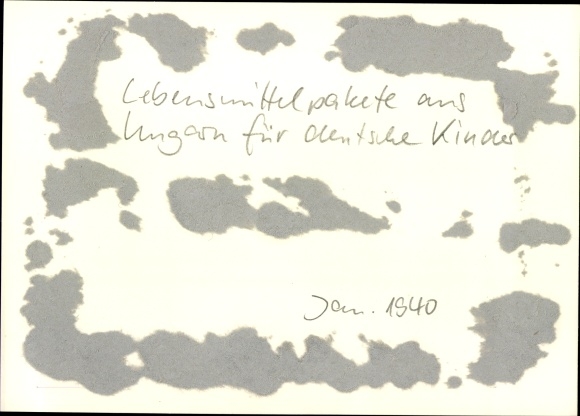 Lebensmittelpakete aus
Ungarn für deutsche Kinder
Jan. 1940